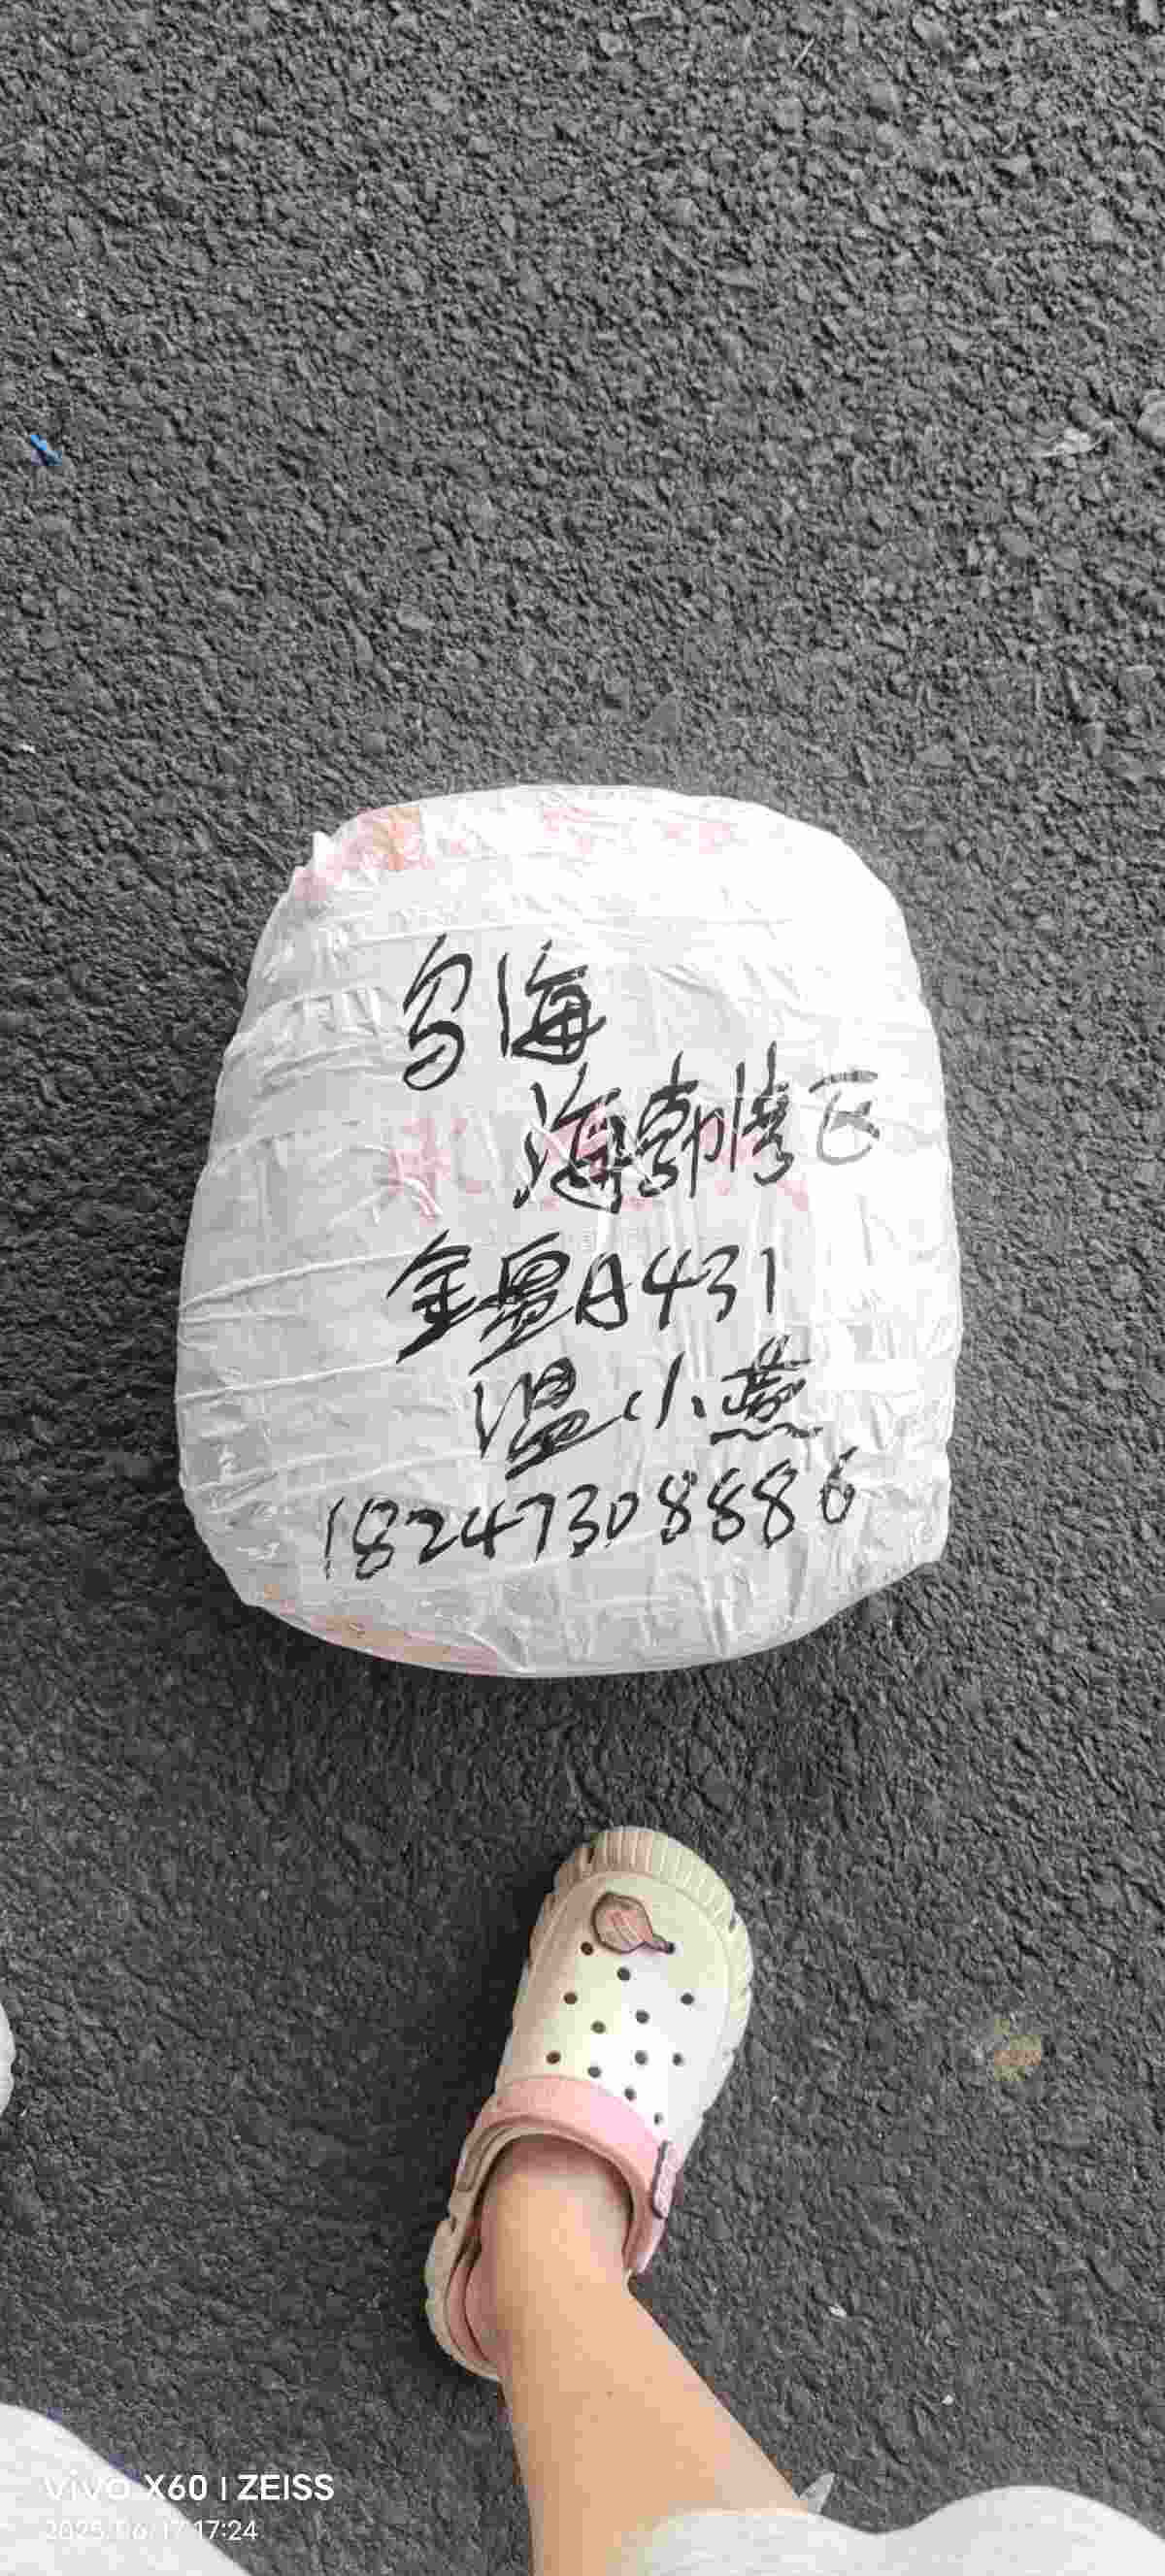 乌海
海勃湾区
金疆A431
温小燕
18247308886
vivo X60 | ZEISS
2025.06.17 17:24